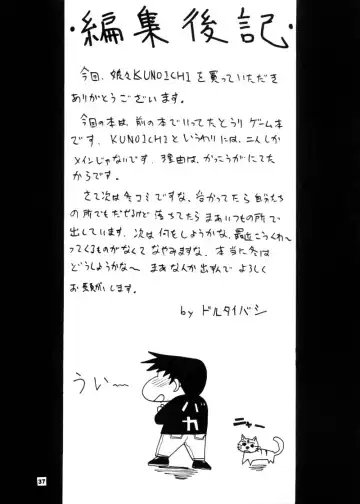 ・編集後記・
今回、娘々KUNOICHIを買っていただき
ありがとうございます。
今回の本は、前の本でいってたとうり ゲーム本
です。KUNOICHIというわりには、二人しか
メインじゃないです。理由は、かっこうがにてた
からです。
さて次は冬コミですな。治かってたら自分たち
の所でもだせるけど 落ちてたら まあいつもの所で
出しています。次は何をしようかな。最近こうくわ〜
ってくるものがなくて なやみますな。本当に冬は
どうしようかな〜 まあなんか出すんで よろしく
お願いします。
by ドルタイバシ
うい〜
バカ
ニャー
37